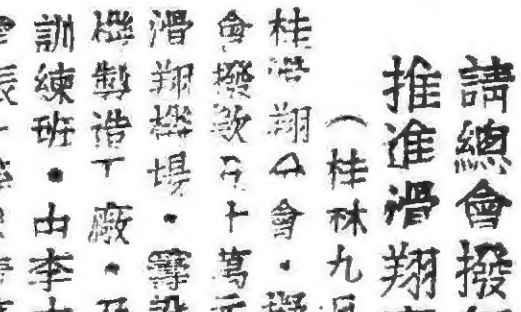 請總會撥
推進滑翔
（桂林九
桂滑翔分會・擬
會撥款五十萬元
滑翔機場・籌設
機製造工廠・及
訓練班・由李